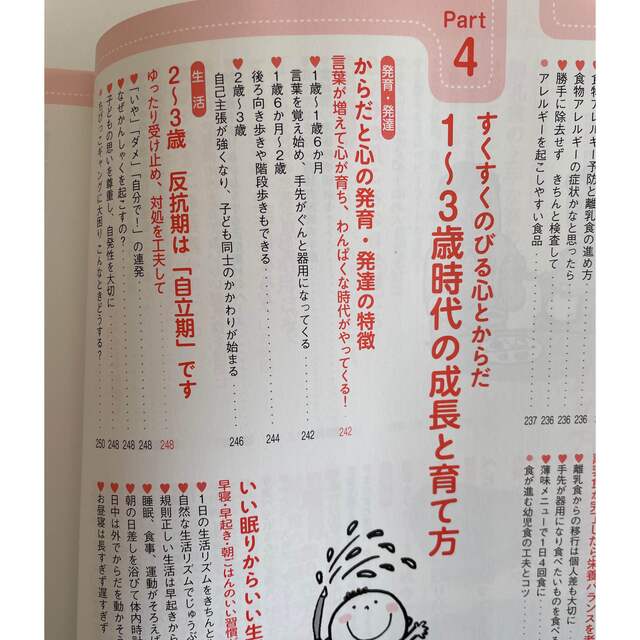 食物アレルギー予防と離乳食の進め方
食物アレルギーの症状かなと思ったら 236
勝手に除去せず きちんと検査して 236
アレルギーを起こしやすい食品 237
離乳食からの移行は個人差も大切に
手先が器用になり食べたいものを食べる
薄味メニューで1日4回食に
食が進む幼児食の工夫とコツ
Part
4
すくすくのびる心とからだ
1〜3歳時代の成長と育て方
発育・発達
からだと心の発育・発達の特徴
言葉が増えて心が育ち、わんぱくな時代がやってくる! 242
♥1歳〜1歳6か月
言葉を覚え始め、手先がぐんと器用になってくる 242
♥1歳6か月〜2歳
後ろ向き歩きや階段歩きもできる 244
♥2歳〜3歳
自己主張が強くなり、子ども同士のかかわりが始まる 246
生活
2〜3歳 反抗期は「自立期」です
ゆったり受け止め、対処を工夫して 248
♥「いや」「ダメ」「自分で!」の連発 248
♥なぜかんしゃくを起こすの? 248
♥子どもの思いを尊重し、自発性を大切に 248
♥ちびっこギャングに大困り、こんなときどうする? 250
いい眠りからいい生
早寝・早起き・朝ごはんのいい習慣
♥1日の生活リズムをきちんと
♥自然な生活リズムでじゅうぶ
♥規則正しい生活は早起きから
♥睡眠、食事、運動がそろえば
♥朝の日差しを浴びて体内時計
♥日中は外でからだを動かそう
♥お昼寝は長すぎず遅すぎず